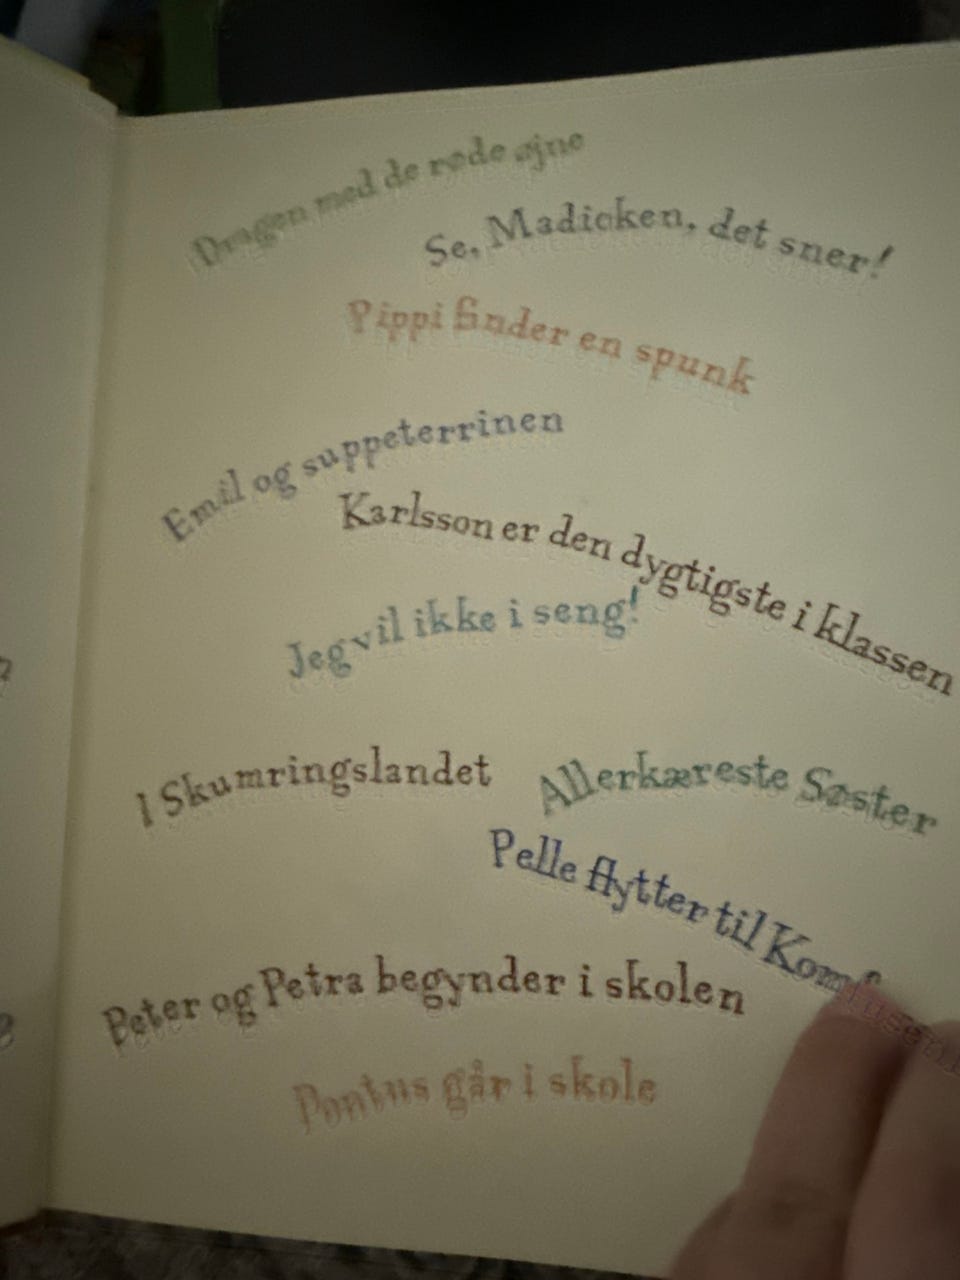 Dragen med de røde øjne
Se, Madicken, det sner!
Pippi finder en spunk
Emil og suppeterrinen
Karlsson er den dygtigste i klassen
Jeg vil ikke i seng!
I Skumringslandet
Allerkæreste Søster
Pelle flytter til
Peter og Petra begynder i skolen
Pontus går i skole